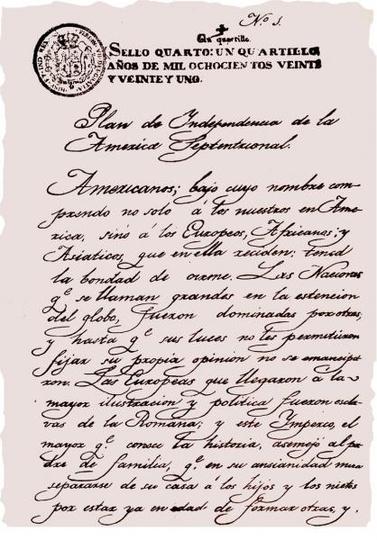 N.º 1.
Un quartillo
SELLO QUARTO: UN QUARTILLO
AÑOS DE MIL OCHOCIENTOS VEINTE
Y VEINTE Y UNO.
Plan de Independencia de la
America Septentrional.
Americanos; bajo cuyo nombre com-
prendo no solo á los nuestros en Ame-
rica, sinó á los Europeos, Africanos; y
Asiaticos, que en ella reciden: tened
la bondad de oirme. Las Naciones
q.e se llaman grandes en la estencion
del globo, fueron dominadas por otras,
y hasta q.e sus luces no les permitieron
fijar su propia opinion no se emancipa-
ron. Las Europeas que llegaron á la
mayor ilustracion y politica fueron escla-
vas de la Romana; y este Imperio, el
mayor q.e conoce la historia, asemejó al pa-
dre de familia, q.e en su ansianidad mira
separarse de su casa á los hijos y los nietos
por estar ya en edad de formar otras, y